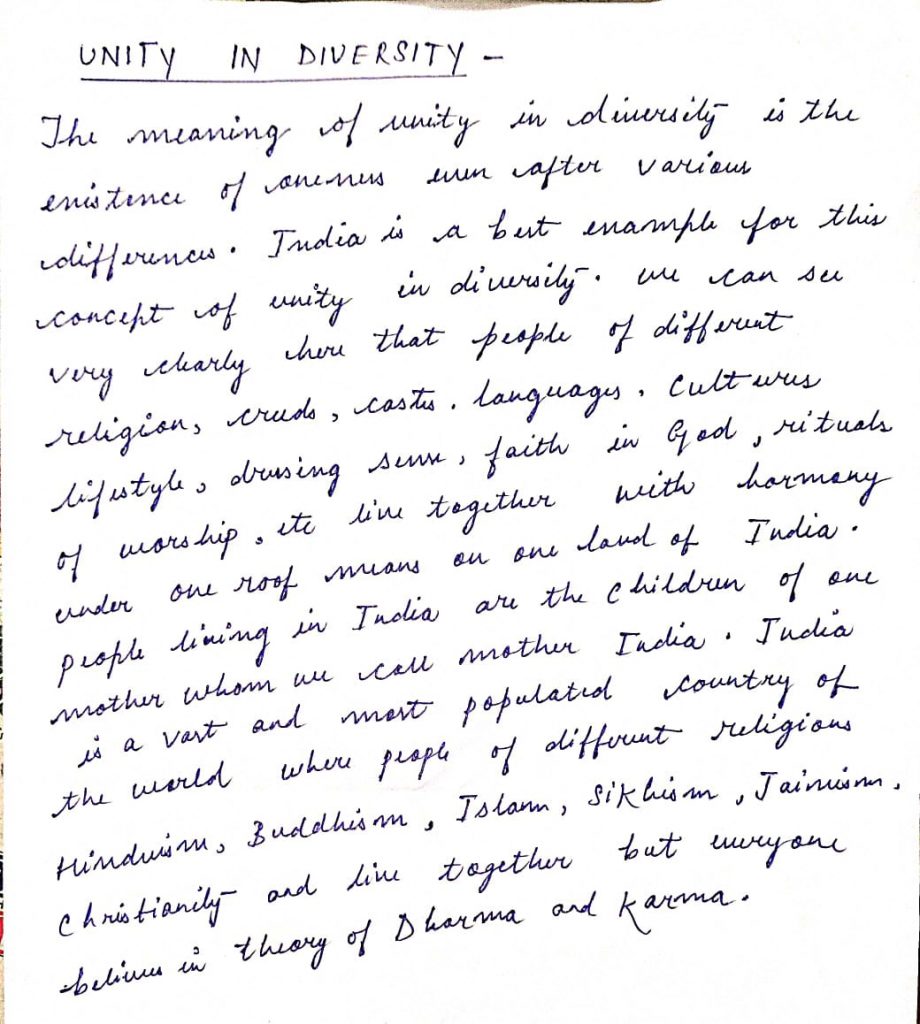 UNITY IN DIVERSITY -
The meaning of unity in diversity is the
existence of oneness even after various
differences. India is a best example for this
concept of unity in diversity. we can see
very clearly here that people of different
religion, creeds, castes. languages, cultures
lifestyle, dressing sense, faith in God, rituals
of worship, etc live together with harmony
under one roof means on one land of India.
people living in India are the children of one
mother whom we call mother India. India
is a vast and most populated country of
the world where people of different religions
Hinduism, Buddhism, Islam, Sikhism, Jainism,
christianity and live together but everyone
believes in theory of Dharma and Karma.